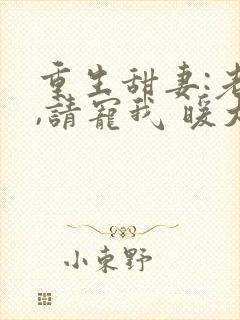 重生甜妻:老
,請寵我 暖大
小東野